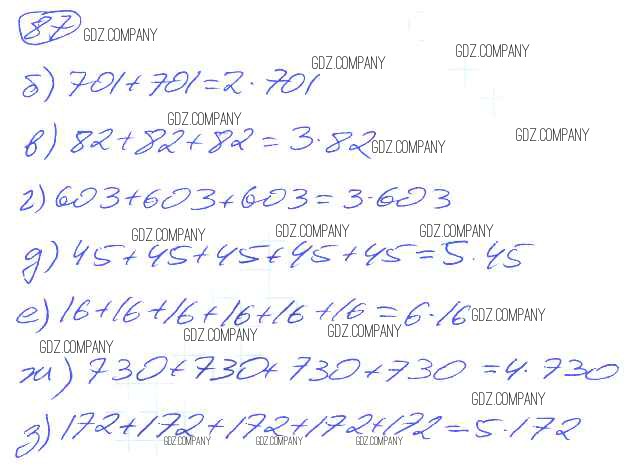 87 GDZ.COMPANY
GDZ.COMPANY GDZ.COMPANY
б) 701+701=2·701
GDZ.COMPANY
в) 82+82+82=3·82 GDZ.COMPANY GDZ.COMPANY
г) 603+603+603=3·603
GDZ.COMPANY GDZ.COMPANY GDZ.COMPANY
д) 45+45+45+45+45=5·45
е) 16+16+16+16+16+16=6·16 GDZ.COMPANY
GDZ.COMPANY GDZ.COMPANY GDZ.COMPANY
ж) 730+730+730+730=4·730
GDZ.COMPANY
з) 172+172+172+172+172=5·172
GDZ.COMPANY GDZ.COMPANY GDZ.COMPANY